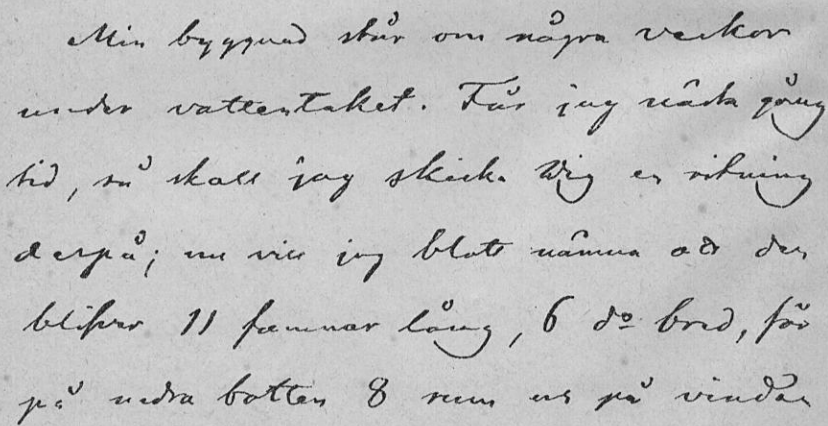 Min byggnad står om några veckor
under vattentaket. Får jag nästa gång
tid, så skall jag skicka Dig en ritning
derpå; nu vill jag blott nämna att den
blifver 11 famnar lång, 6 do bred, får
på nedra botten 8 rum och på vinden